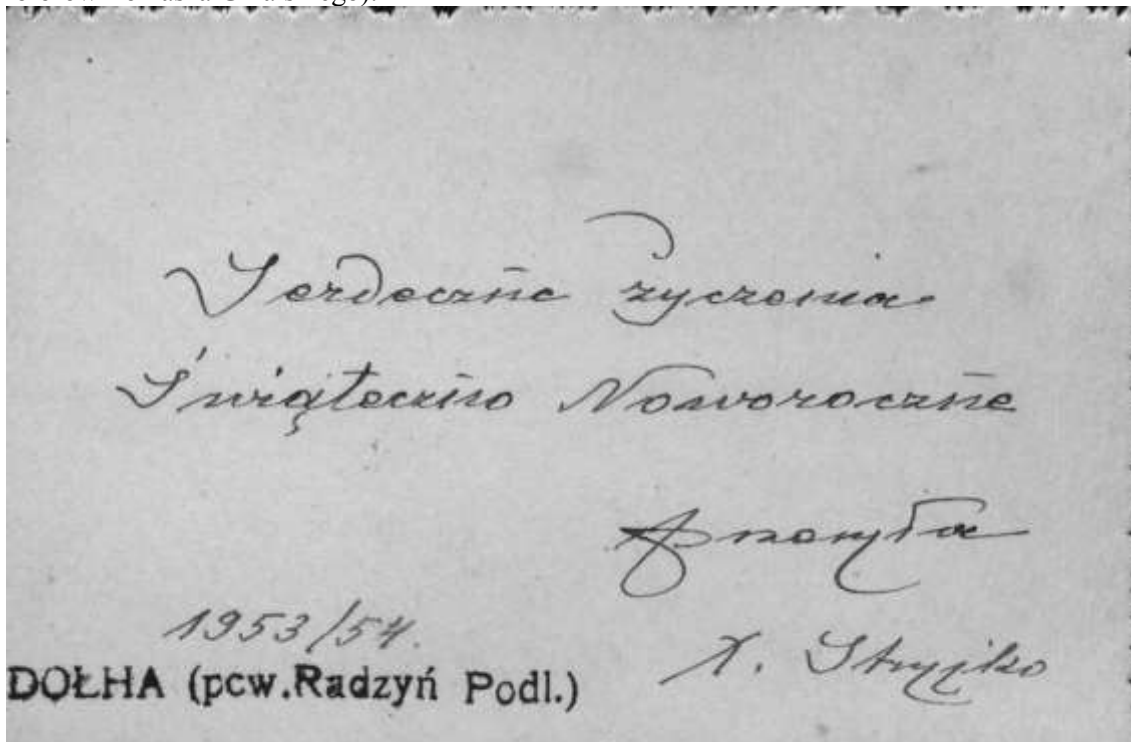 Serdeczne życzenia
Świąteczno Noworoczne
1953/54.
X. Stryjko
DOŁHA (pow.Radzyń Podl.)